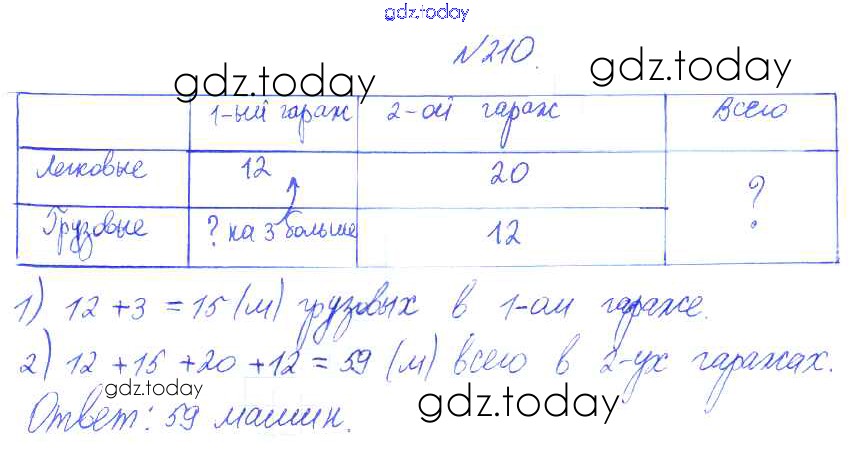 gdz.today
№210.
gdz.today gdz.today
1-ый гараж 2-ой гараж Всего
Легковые 12 20 ?
Грузовые ? на 3 больше 12
1) 12 + 3 = 15 (м) грузовых в 1-ом гараже.
2) 12 + 15 + 20 + 12 = 59 (м) всего в 2-ух гаражах.
gdz.today gdz.today
Ответ: 59 машин.